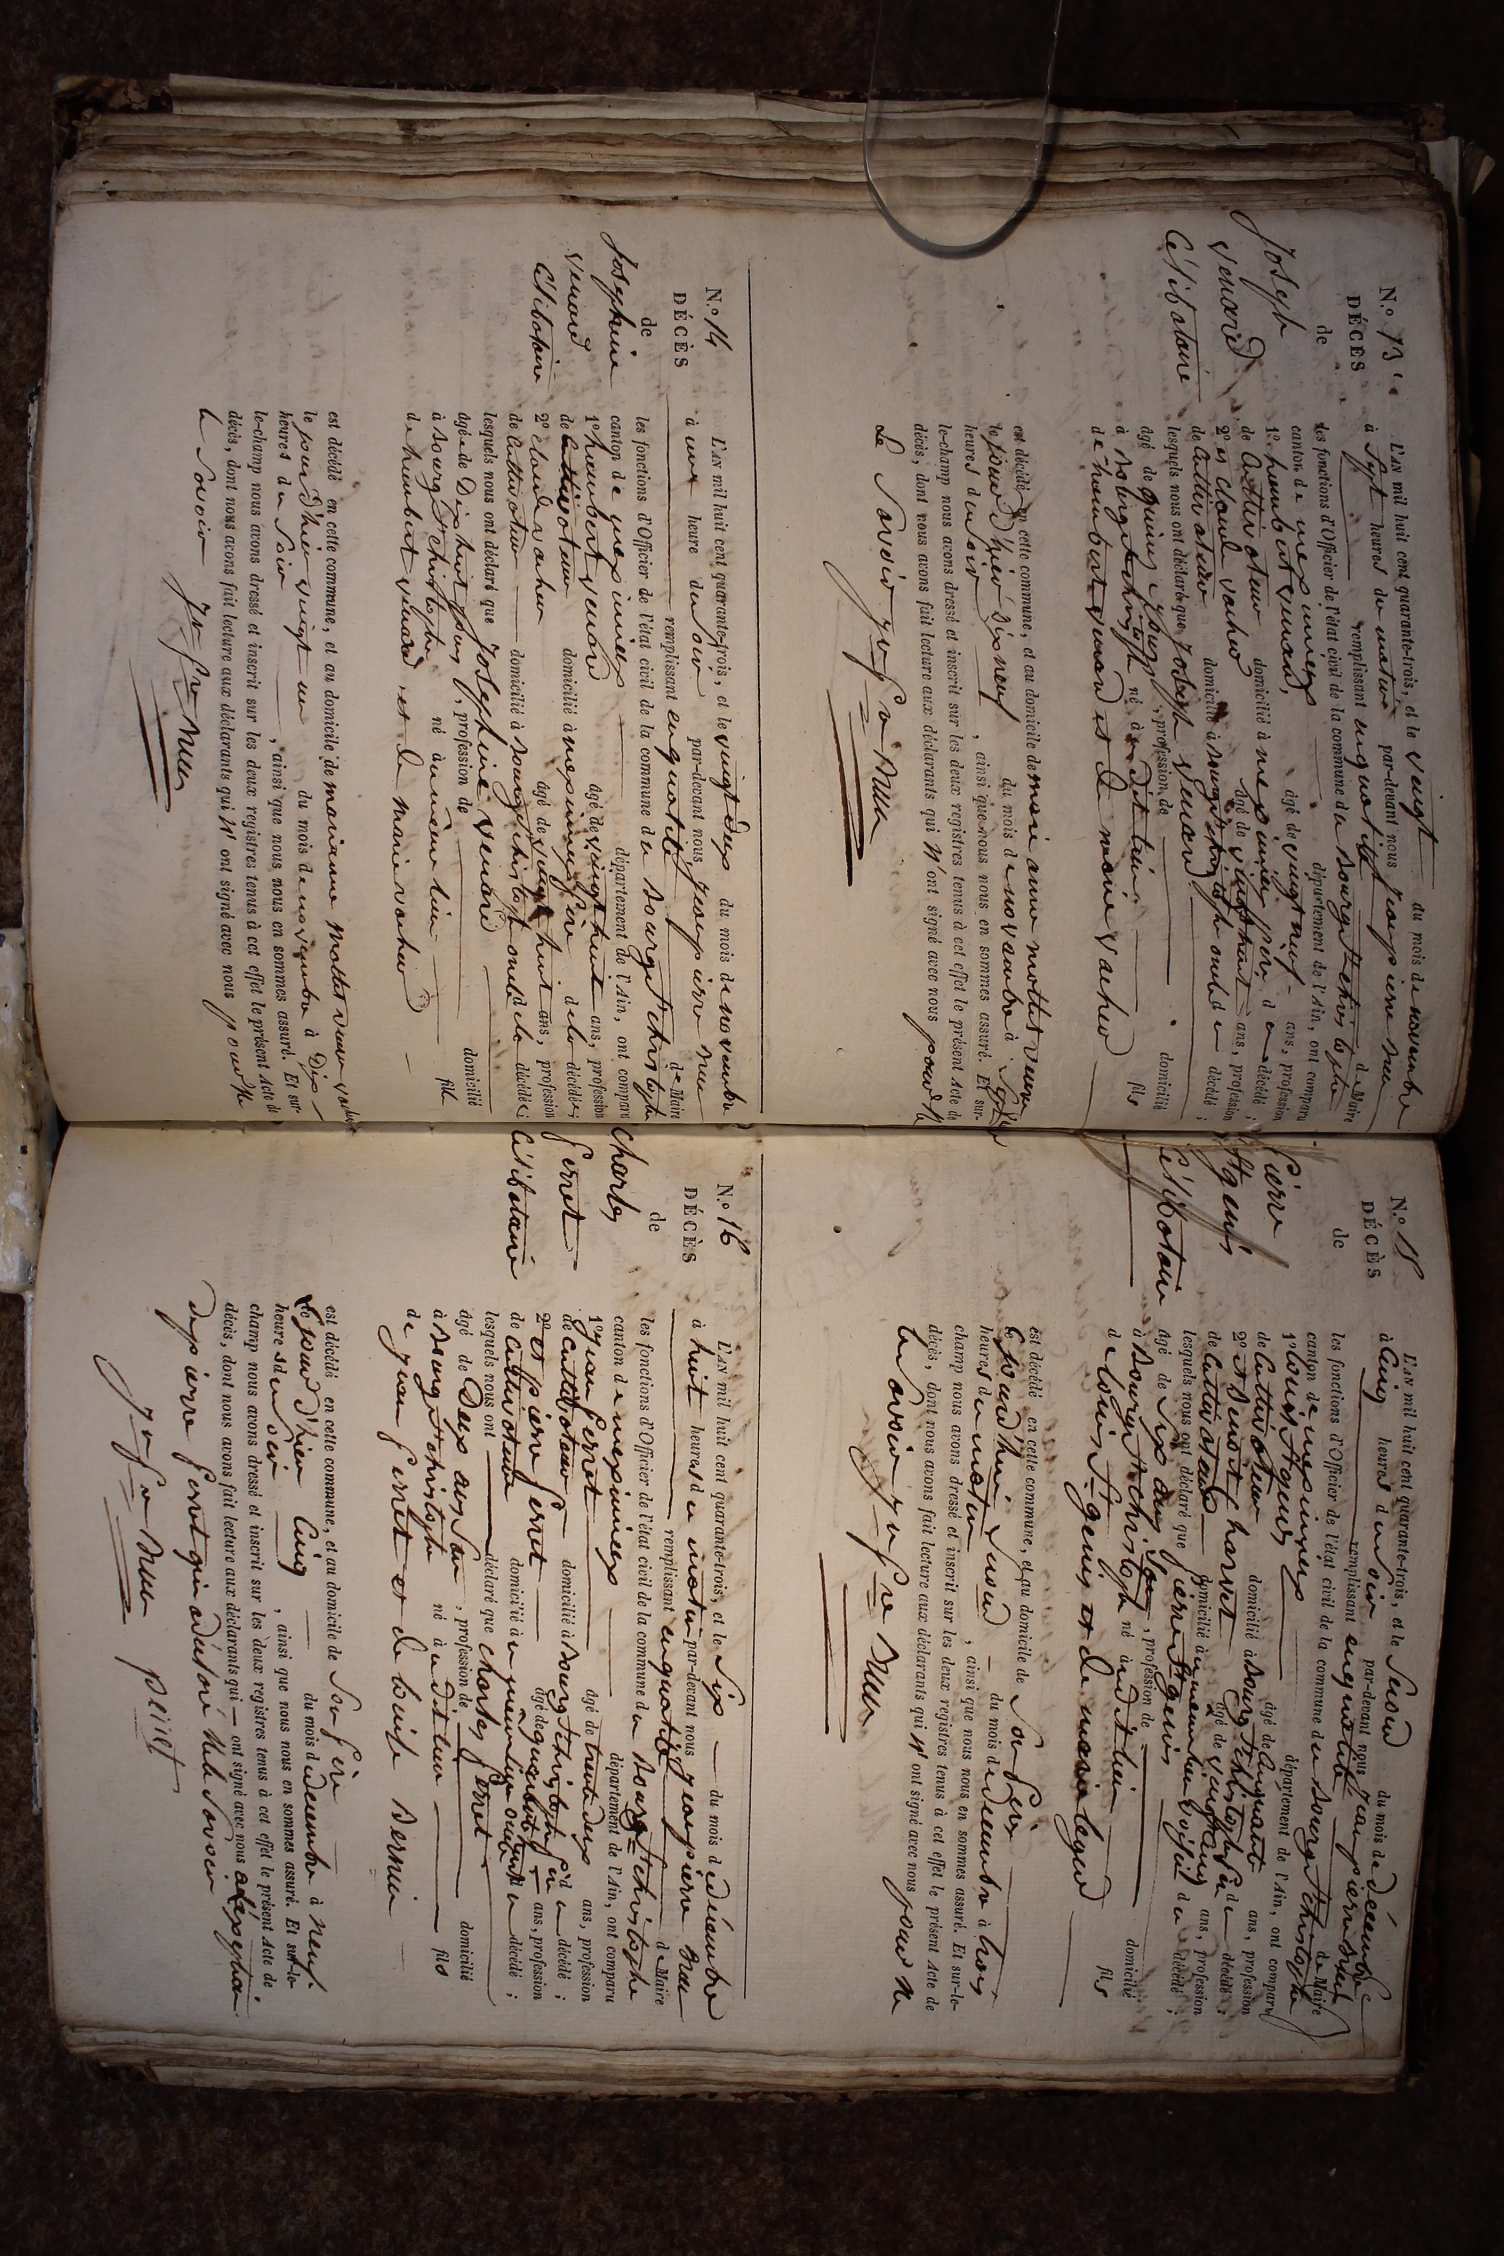 N.º 13
DÉCÈS
de
Joseph
venard
Célibataire
L'AN mil huit cent quarante-trois, et le vingt du mois de novembre
à sept heures du matin par-devant nous jean pierre
remplissant en qualité de Maire
les fonctions d'Officier de l'état civil de la commune de Bourg St christophe
canton de meximieux département de l'Ain, ont comparu
1º humbert venard, âgé de vingt neuf ans, profession
de Cultivateur domicilié à meximieux du décédé ;
2º et claude vacher âgé de vingt huit ans, profession
de Cultivateur domicilié à Bourg St christophe oncle du décédé ;
lesquels nous ont déclaré que joseph venard
âgé de quinze jours, profession de domicilié
à Bourg St christophe né à udit lieu fils
de humbert venard et de marie vacher
est décédé en cette commune, et au domicile de marianne mottet veuve
le jour d'hier dix neuf du mois de novembre à sept
heures du soir, ainsi que nous nous en sommes assuré. Et sur-
le-champ nous avons dressé et inscrit sur les deux registres tenus à cet effet le présent Acte de
décès, dont nous avons fait lecture aux déclarants qui N'ont signé avec nous pour ne
Le savoir
N.º 14
DÉCÈS
de
Josephine
venard
Célibataire
L'AN mil huit cent quarante-trois, et le vingt deux du mois de novembre
à une heure du soir par-devant nous jean pierre
remplissant en qualité de Maire
les fonctions d'Officier de l'état civil de la commune de Bourg St christophe
canton de meximieux département de l'Ain, ont comparu
1º humbert venard âgé de vingt huit ans, profession
de Cultivateur domicilié à meximieux père de la décédée ;
2º claude vacher âgé de vingt huit ans, profession
de Cultivateur domicilié à Bourg St christophe oncle de la décédée ;
lesquels nous ont déclaré que josephine venard
âgé de Dix huit jours, profession de domicilié
à Bourg St christophe né à u même lieu fille
de humbert venard et de marie vacher
est décédé en cette commune, et au domicile de marianne mottet veuve vacher
le jour d'hier vingt un du mois de novembre à Dix
heures du soir, ainsi que nous nous en sommes assuré. Et sur-
le-champ nous avons dressé et inscrit sur les deux registres tenus à cet effet le présent Acte de
décès, dont nous avons fait lecture aux déclarants qui N'ont signé avec nous pour ne
le savoir
N.º 15
DÉCÈS
de
Pierre
St genis
Célibataire
L'AN mil huit cent quarante-trois, et le second du mois de décembre
à Cinq heures du soir par-devant nous jean pierre
remplissant en qualité de Maire
les fonctions d'Officier de l'état civil de la commune de Bourg St christophe
canton de meximieux département de l'Ain, ont comparu
1º louis St genis âgé de Cinquante ans, profession
de Cultivateur domicilié à Bourg St christophe père du décédé ;
2º et Benoit charvet âgé de vingt Cinq ans, profession
de Cultivateur domicilié à u même lieu voisin du décédé ;
lesquels nous ont déclaré que pierre St genis
âgé de six ans, profession de domicilié
à Bourg St christophe né à udit lieu fils
de louis St genis et de marie
est décédé en cette commune, et au domicile de Son père
le jourd'hui second du mois de décembre à trois
heures du matin, ainsi que nous nous en sommes assuré. Et sur-le-
champ nous avons dressé et inscrit sur les deux registres tenus à cet effet le présent Acte de
décès, dont nous avons fait lecture aux déclarants qui N'ont signé avec nous pour ne
le savoir
N.º 16
DÉCÈS
de
Charles
perret
Célibataire
L'AN mil huit cent quarante-trois, et le Six du mois de décembre
à huit heures du matin par-devant nous jean pierre
remplissant en qualité de Maire
les fonctions d'Officier de l'état civil de la commune de Bourg St christophe
canton de meximieux département de l'Ain, ont comparu
1º jean perret âgé de trente deux ans, profession
de Cultivateur domicilié à Bourg St christophe père du décédé ;
2º et pierre perret âgé de ans, profession
de Cultivateur domicilié à u même lieu oncle du décédé ;
lesquels nous ont déclaré que charles perret
âgé de Deux ans, profession de domicilié
à Bourg St christophe né à udit lieu fils
de jean perret et de louise Bernin
est décédé en cette commune, et au domicile de Son père
le jour d'hier Cinq du mois de décembre à neuf
heures du soir, ainsi que nous nous en sommes assuré. Et sur-le-
champ nous avons dressé et inscrit sur les deux registres tenus à cet effet le présent Acte de
décès, dont nous avons fait lecture aux déclarants qui ont signé avec nous
de pierre perret qui a déclaré ne le savoir
perret